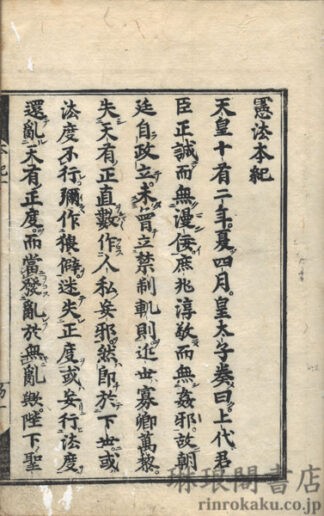 憲法本紀
天皇十有二年夏四月皇太子奏曰上代君
臣正誠而無漫佞庶兆淳敬而無姦邪故朝
廷自政立未曾立禁制軌則近世寡卿萬黎
失天有正直數作人私妄邪然即於下世或
法度不行彌作複僻迷失正度或妄行法度
還亂天有正度而當發亂於無亂與陛下聖
琳琅閣書店
rinrokaku.co.jp